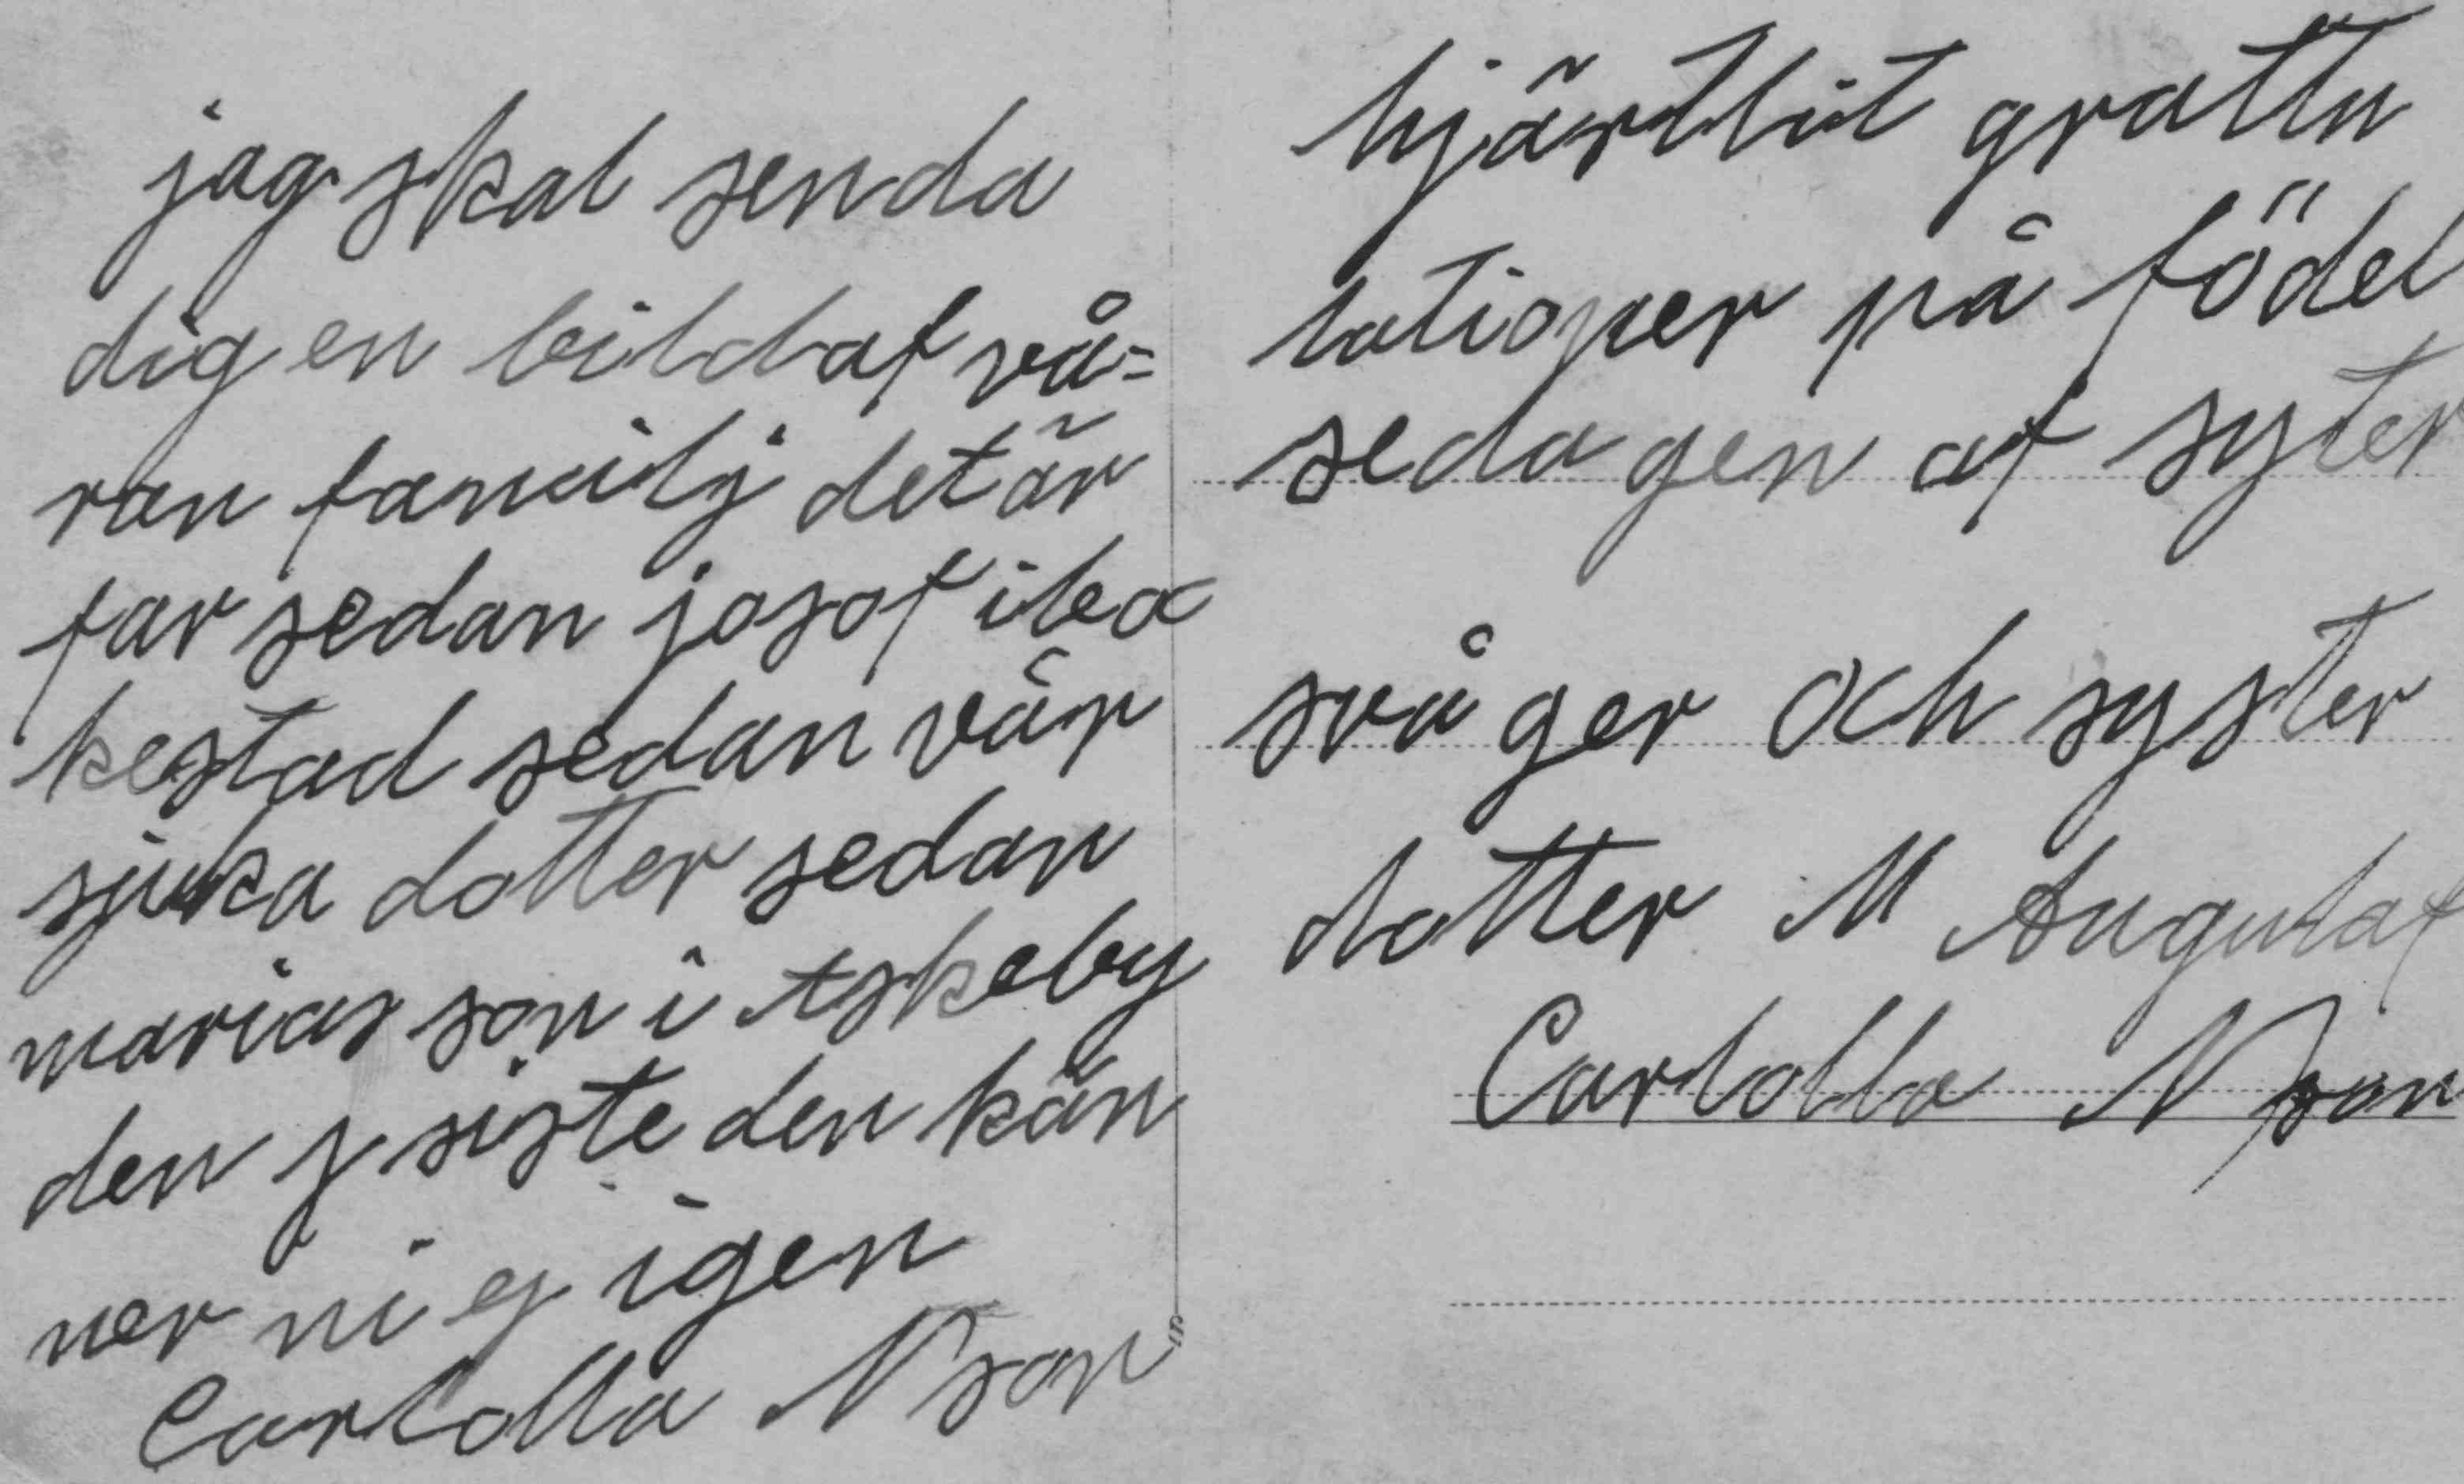 jag skal senda
dig en bild af vå=
ran familj det är
far sedan josof i bex
kestad sedan vår
sjuka dotter sedan
marias son i Askeby
den siste den kän
ner ni ej igen
Carlolla Nson
hjärtlit grattu
lationer på födel
sedagen af syter
svåger och syster
dotter M
Carlolla Nson